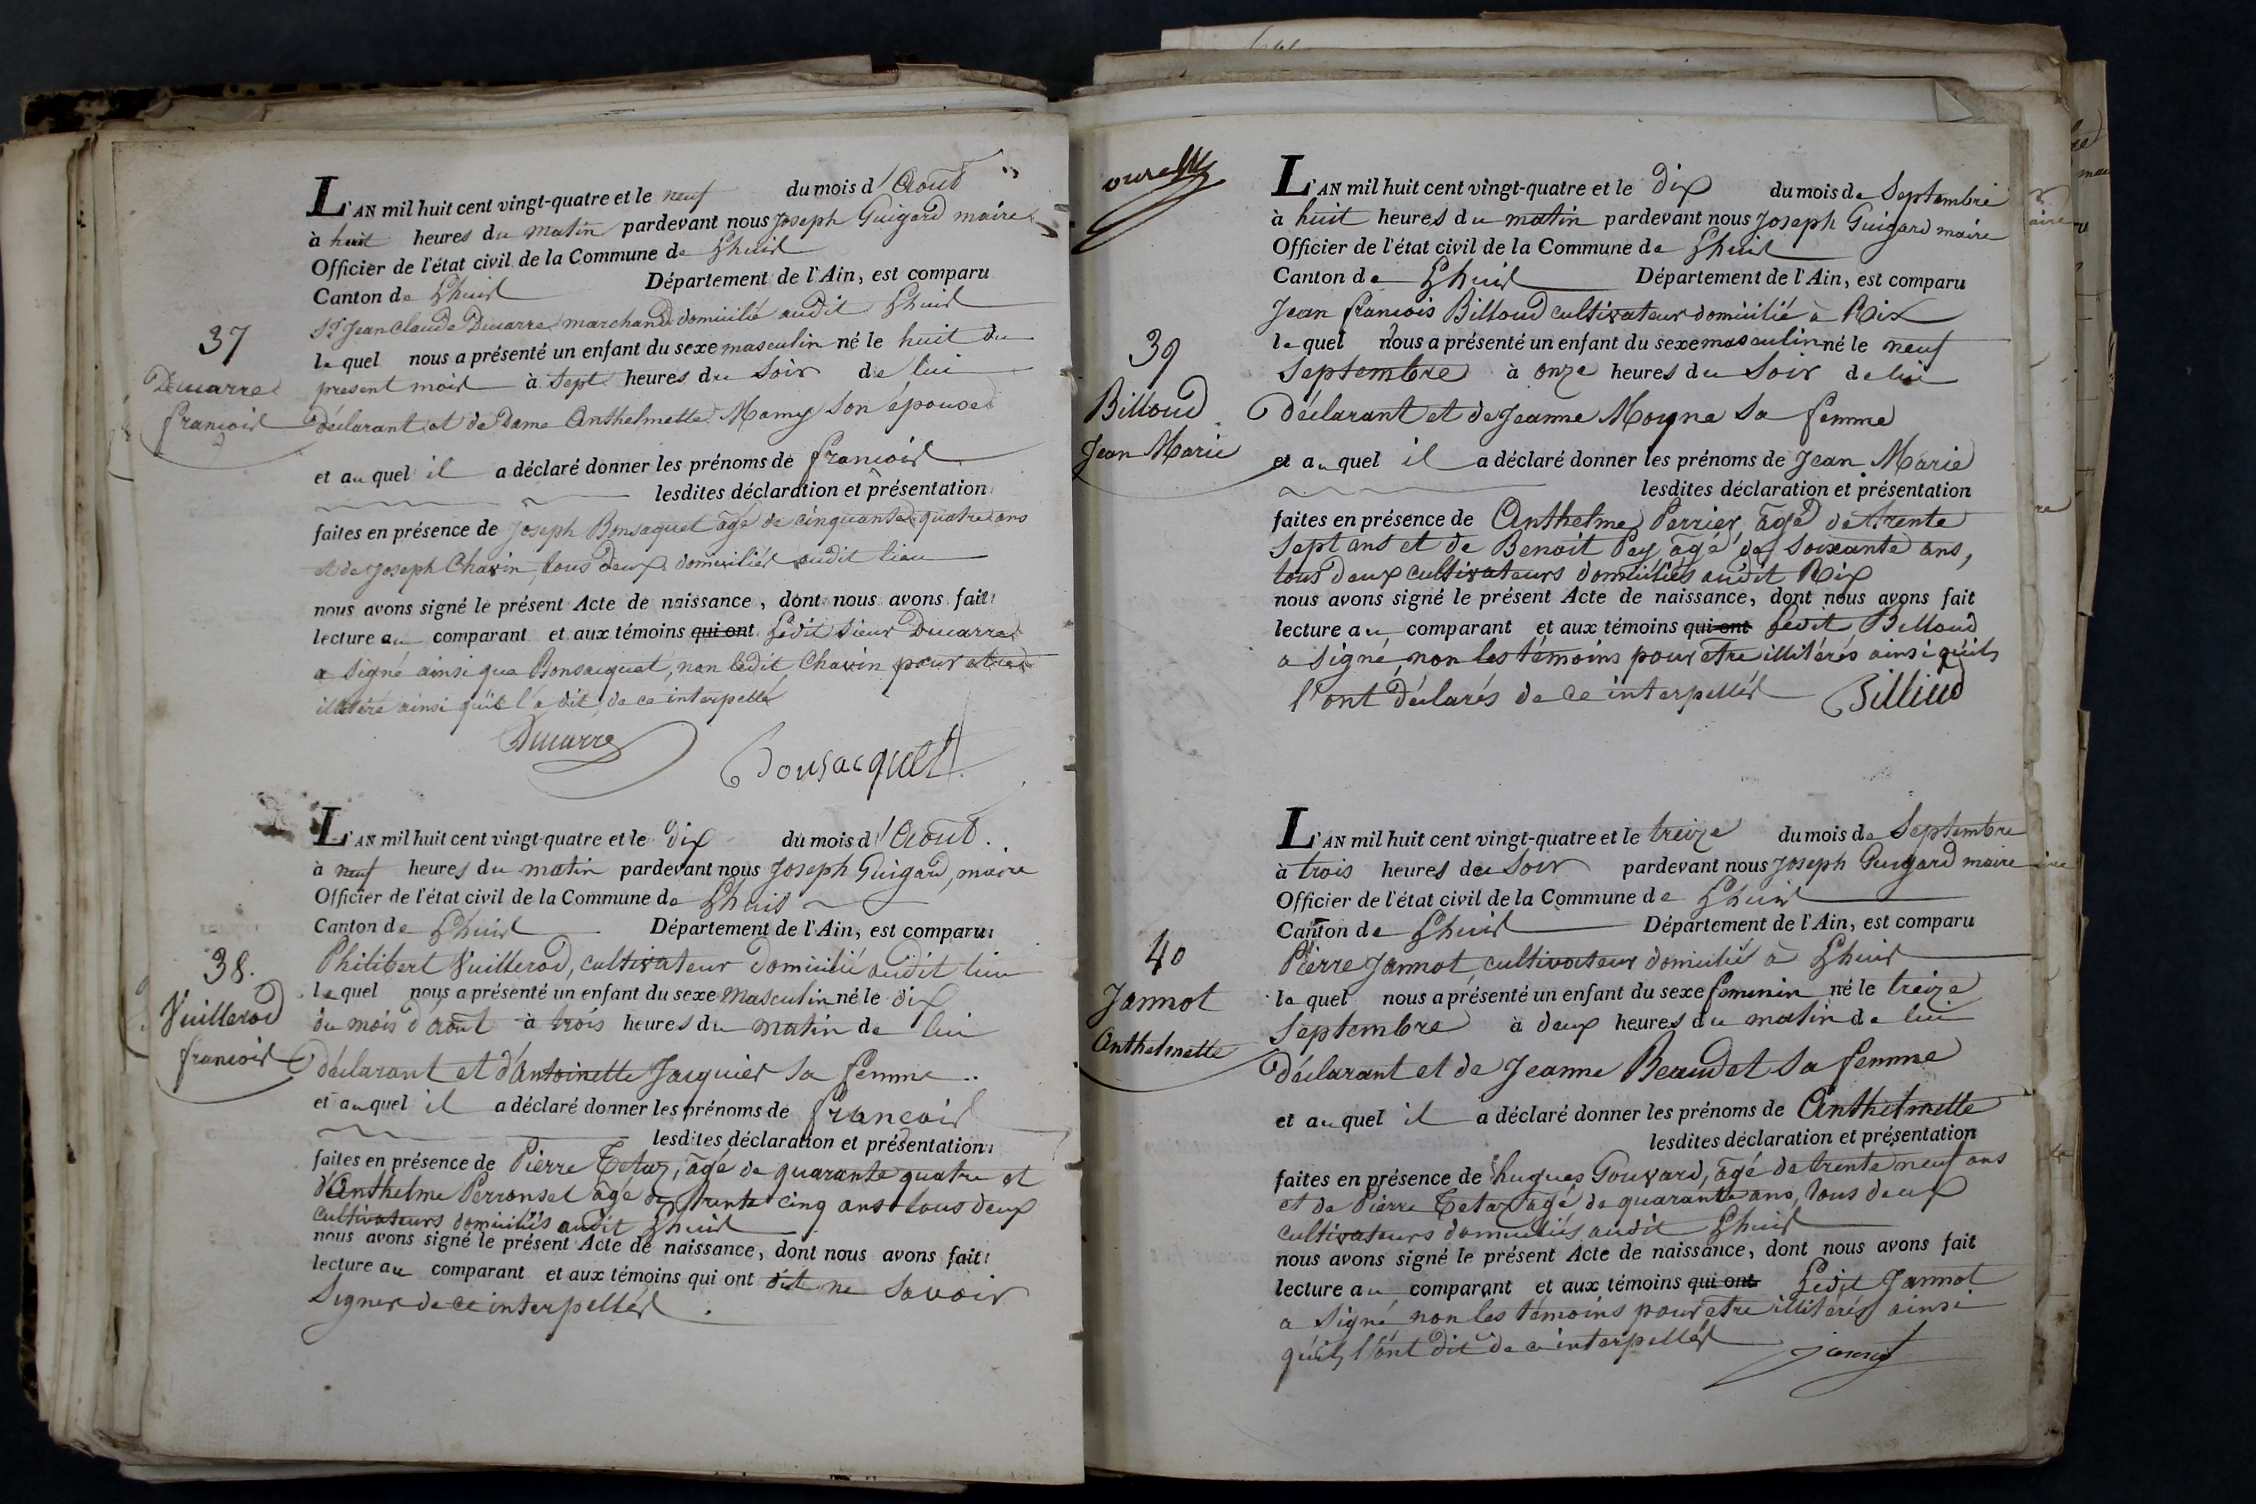 L'AN mil huit cent vingt-quatre et le neuf du mois d'Août
à huit heures du matin pardevant nous Joseph Guigard maire
Officier de l'état civil de la Commune de Lhuis
Canton de Lhuis Département de l'Ain, est comparu
Sr Jean Claude Ducarre marchand domicilié audit Lhuis
lequel nous a présenté un enfant du sexe masculin né le huit du
present mois à Sept heures du Soir de lui
déclarant et de Dame Anthelmette Mamy son épouse
et auquel il a déclaré donner les prénoms de françois
lesdites déclaration et présentation
faites en présence de Joseph Bonsaquet âgé de cinquante quatre ans
et de Joseph Chavin, tous deux domiciliés audit lieu
nous avons signé le présent Acte de naissance, dont nous avons fait
lecture au comparant et aux témoins qui ont Ledit Sieur Ducarre
a Signé ainsi que Bonsacquet, non ledit Chavin pour etre
illitéré ainsi qu'il l'a dit de ce interpellé
Ducarre
Bonsacquet
37
Ducarre
françois
L'AN mil huit cent vingt-quatre et le dix du mois d'Août.
à neuf heures du matin pardevant nous Joseph Guigard, maire
Officier de l'état civil de la Commune de Lhuis
Canton de Lhuis Département de l'Ain, est comparu
Philibert Vuillerod, cultivateur domicilié audit lieu
lequel nous a présenté un enfant du sexe Masculin né le dix
du mois d'août à trois heures du matin de lui
déclarant et d'Antoinette Jacquier sa femme.
et auquel il a déclaré donner les prénoms de françois
lesdites déclaration et présentation
faites en présence de Pierre Tetaz, âgé de quarante quatre et
d'Anthelme Perronsel âgé de trente cinq ans tous deux
cultivateurs domiciliés audit Lhuis
nous avons signé le présent Acte de naissance, dont nous avons fait
lecture au comparant et aux témoins qui ont dit ne Savoir
Signer de ce interpellés
38.
Vuillerod
françois
L'AN mil huit cent vingt-quatre et le dix du mois de Septembre
à huit heures du matin pardevant nous Joseph Guigard maire
Officier de l'état civil de la Commune de Lhuis
Canton de Lhuis Département de l'Ain, est comparu
Jean françois Billoud cultivateur domicilié à Rix
lequel nous a présenté un enfant du sexe masculin né le neuf
Septembre à onze heures du Soir de lui
déclarant et de Jeanne Moyne Sa femme
et auquel il a déclaré donner les prénoms de Jean Marie
lesdites déclaration et présentation
faites en présence de Anthelme Perrier, âgé de trente
Sept ans et de Benoit Pey, âgé de Soixante ans,
tous deux cultivateurs domiciliés audit Rix
nous avons signé le présent Acte de naissance, dont nous avons fait
lecture au comparant et aux témoins qui ont Ledit Billoud
a Signé, non les témoins pour etre illitérés ainsi qu'ils
l'ont déclarés de ce interpellés
Billiud
39
Billoud
Jean Marie
L'AN mil huit cent vingt-quatre et le treize du mois de Septembre
à trois heures du Soir pardevant nous Joseph Guigard maire
Officier de l'état civil de la Commune de Lhuis
Canton de Lhuis Département de l'Ain, est comparu
Pierre Jannot cultivateur domicilié à Lhuis
lequel nous a présenté un enfant du sexe feminin né le treize
Septembre à deux heures du matin de lui
déclarant et de Jeanne Beaudet Sa femme
et auquel il a déclaré donner les prénoms de Anthelmette
lesdites déclaration et présentation
faites en présence de hugues Gouvard, âgé de trente neuf ans
et de Pierre Tetaz âgé de quarante ans, tous deux
cultivateurs domiciliés audit Lhuis
nous avons signé le présent Acte de naissance, dont nous avons fait
lecture au comparant et aux témoins qui ont Ledit Jannot
a Signé non les témoins pour etre illitérés ainsi
qu'ils l'ont dit de ce interpellés
jannot
40
Jannot
Anthelmette